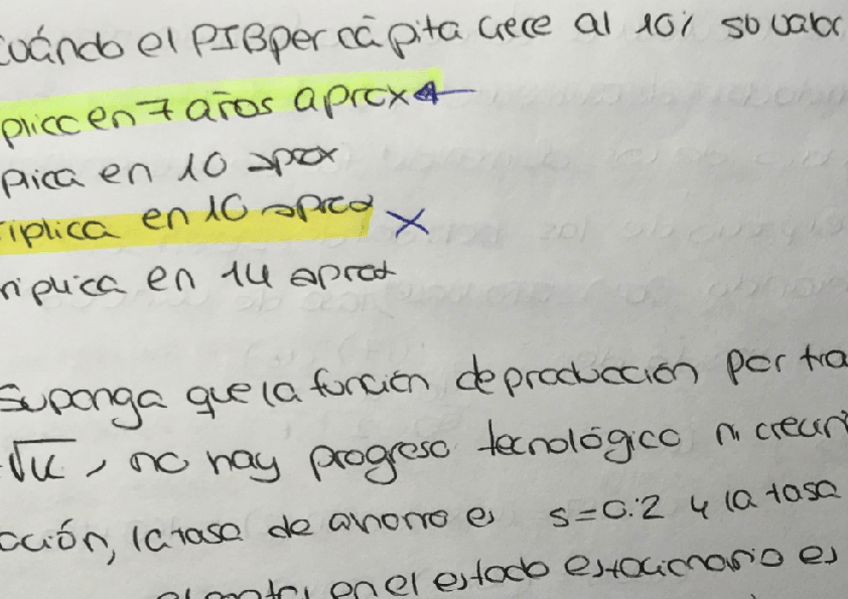 cuándo el PIB per cápita crece al 10% su valor
plica en 7 años aprox
plica en 10 aprox
riplica en 10 aprox
riplica en 14 aprox
Suponga que la función de producción por tra
√k, no hay progreso tecnológico ni crecimi
ación, la tasa de ahorro es s=0.2 y la tasa
en el estado estacionario es